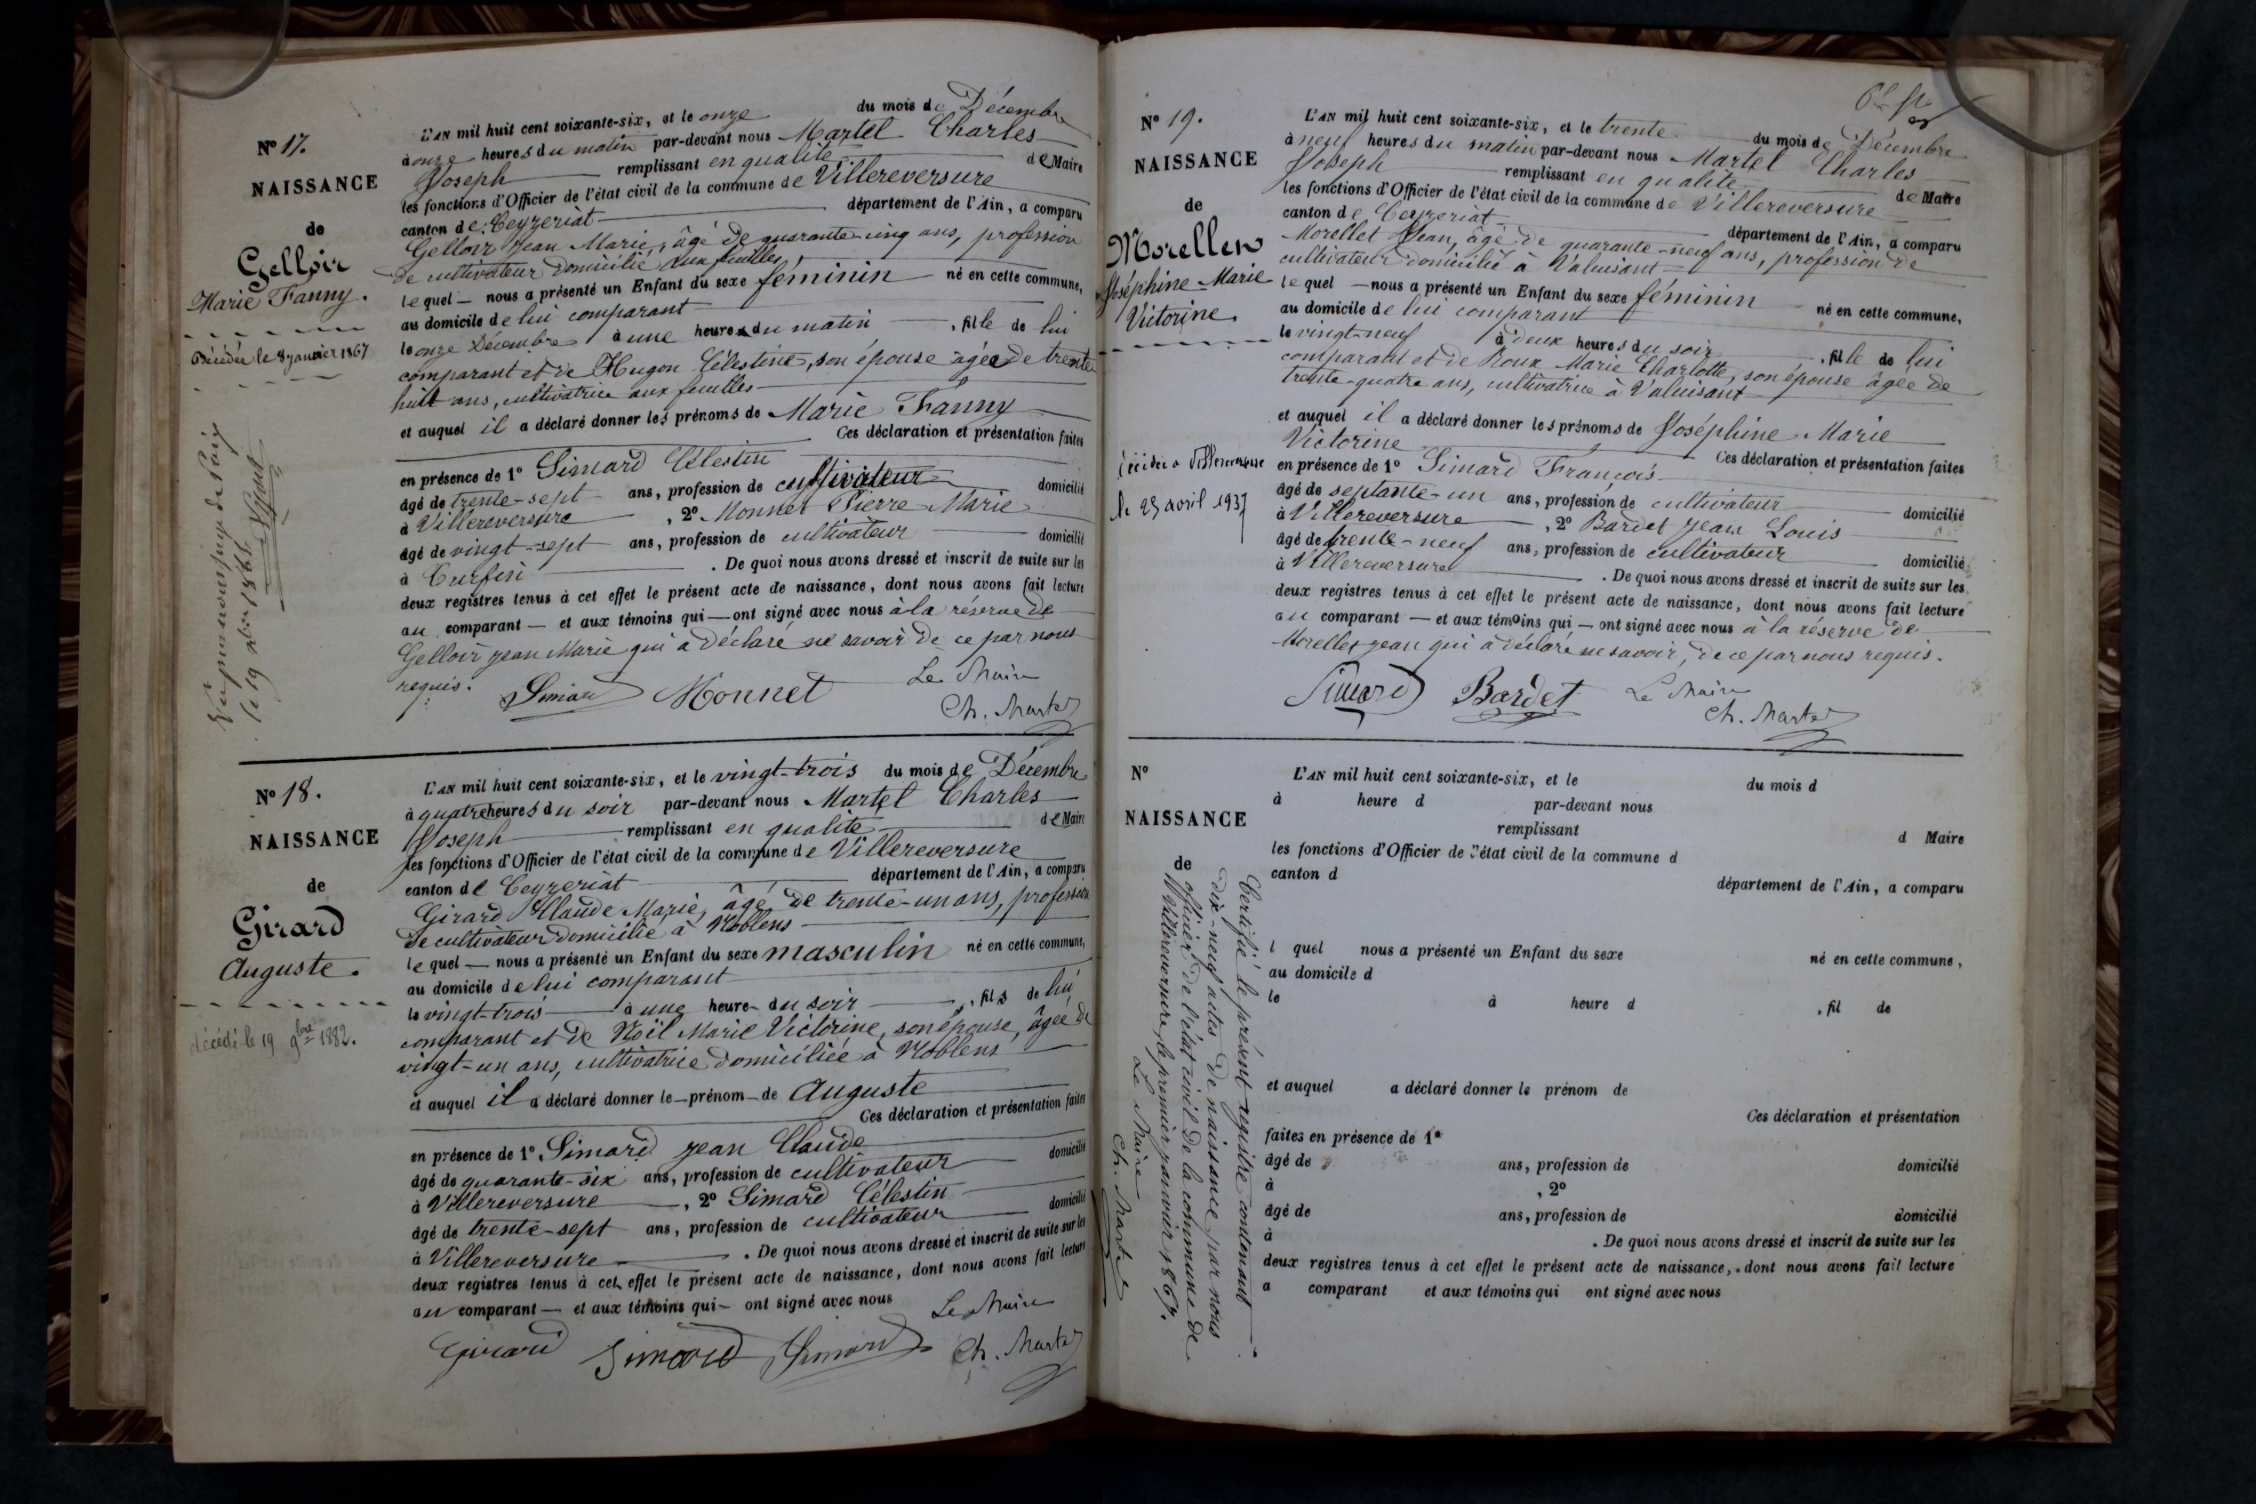 N° 17.
NAISSANCE
de
Gelloir
Marie Fanny.
Décédée le 8 janvier 1867
L'AN mil huit cent soixante-six, et le onze du mois de Décembre
à onze heures du matin par-devant nous Martel Charles
Joseph remplissant en qualité de Maire
les fonctions d'Officier de l'état civil de la commune de Villereversure
canton de Ceyzeriat département de l'Ain, a comparu
Gelloir Jean Marie, âgé de quarante-cinq ans, profession
de cultivateur domicilié aux feuilles
lequel — nous a présenté un Enfant du sexe féminin né en cette commune,
au domicile de lui comparant
le onze Décembre à une heure du matin , fille de lui
comparant et de Hugon Célestine, son épouse âgée de trente
huit ans, cultivatrice aux feuilles
et auquel il a déclaré donner les prénoms de Marie Fanny
Ces déclaration et présentation faites
en présence de 1° Simard Célestin
âgé de trente-sept ans, profession de cultivateur domicilié
à Villereversure , 2° Monnet Pierre Marie
âgé de vingt-sept ans, profession de cultivateur domicilié
à . De quoi nous avons dressé et inscrit de suite sur les
deux registres tenus à cet effet le présent acte de naissance, dont nous avons fait lecture
au comparant — et aux témoins qui — ont signé avec nous à la réserve de
Gelloir Jean Marie qui a déclaré ne savoir de ce par nous
requis.
Simard Monnet Le Maire
Ch. Martel
Vu par nous juge de Paix
le 19 1866.
N° 18.
NAISSANCE
de
Girard
Auguste.
décédé le 19 9bre 1882.
L'AN mil huit cent soixante-six, et le vingt-trois du mois de Décembre
à quatre heures du soir par-devant nous Martel Charles
Joseph remplissant en qualité de Maire
les fonctions d'Officier de l'état civil de la commune de Villereversure
canton de Ceyzeriat département de l'Ain, a comparu
Girard Claude Marie, âgé de trente-un ans, profession
de cultivateur domicilié à Noblens
lequel — nous a présenté un Enfant du sexe masculin né en cette commune,
au domicile de lui comparant
le vingt-trois à une heure du soir , fils de lui
comparant et de Noël Marie Victorine, son épouse, âgée de
vingt-un ans, cultivatrice domiciliée à Noblens
et auquel il a déclaré donner le prénom de Auguste
Ces déclaration et présentation faites
en présence de 1° Simard Jean Claude
âgé de quarante-six ans, profession de cultivateur domicilié
à Villereversure , 2° Simard Célestin
âgé de trente-sept ans, profession de cultivateur domicilié
à Villereversure . De quoi nous avons dressé et inscrit de suite sur les
deux registres tenus à cet effet le présent acte de naissance, dont nous avons fait lecture
au comparant — et aux témoins qui — ont signé avec nous
Le Maire
Girard Simard Simard Ch. Martel
N° 19.
NAISSANCE
de
Morellet
Joséphine Marie
Victorine.
décédée à Villereversure
le 25 avril 1937
L'AN mil huit cent soixante-six, et le trente du mois de Décembre
à neuf heures du matin par-devant nous Martel Charles
Joseph remplissant en qualité de Maire
les fonctions d'Officier de l'état civil de la commune de Villereversure
canton de Ceyzeriat département de l'Ain, a comparu
Morellet Jean, âgé de quarante-neuf ans, profession de
cultivateur domicilié à Valuisant
lequel — nous a présenté un Enfant du sexe féminin né en cette commune,
au domicile de lui comparant
le vingt-neuf à deux heures du soir , fille de lui
comparant et de Roux Marie Charlotte, son épouse âgée de
trente-quatre ans, cultivatrice à Valuisant
et auquel il a déclaré donner les prénoms de Joséphine Marie
Victorine Ces déclaration et présentation faites
en présence de 1° Simard François
âgé de septante-un ans, profession de cultivateur domicilié
à Villereversure , 2° Bardet Jean Louis
âgé de trente-neuf ans, profession de cultivateur domicilié
à Villereversure . De quoi nous avons dressé et inscrit de suite sur les
deux registres tenus à cet effet le présent acte de naissance, dont nous avons fait lecture
au comparant — et aux témoins qui — ont signé avec nous à la réserve de
Morellet Jean qui a déclaré ne savoir, de ce par nous requis.
Simard Bardet Le Maire
Ch. Martel
N°
NAISSANCE
de
L'AN mil huit cent soixante-six, et le du mois d
à heure d par-devant nous
remplissant d Maire
les fonctions d'Officier de l'état civil de la commune d
canton d département de l'Ain, a comparu
l quel nous a présenté un Enfant du sexe né en cette commune,
au domicile d
le à heure d , fil de
et auquel a déclaré donner le prénom de
Ces déclaration et présentation
faites en présence de 1°
âgé de ans, profession de domicilié
à , 2°
âgé de ans, profession de domicilié
à . De quoi nous avons dressé et inscrit de suite sur les
deux registres tenus à cet effet le présent acte de naissance, dont nous avons fait lecture
a comparant et aux témoins qui ont signé avec nous
Certifié le présent registre contenant
dix-neuf actes de naissance par nous
officier de l'état civil de la commune de
Villereversure, le premier janvier 1867.
Le Maire
Ch. Martel